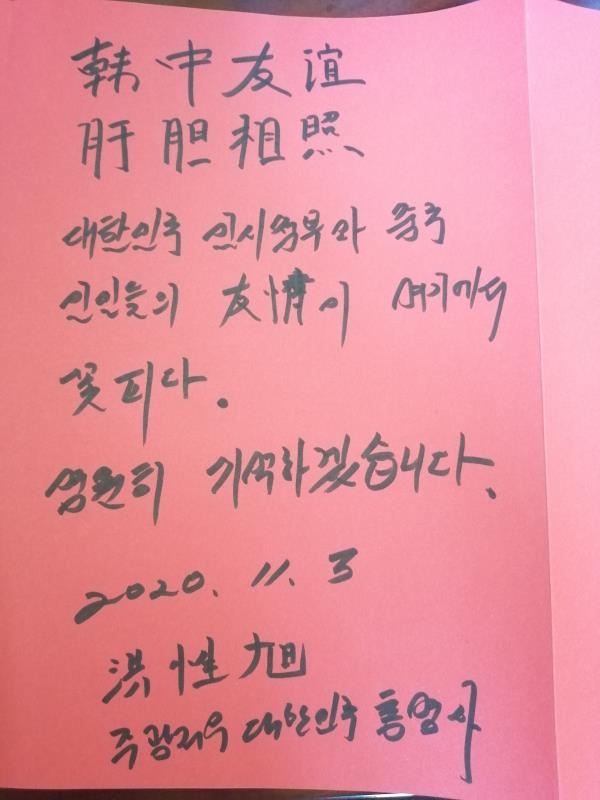 韩 中 友 谊
肝 胆 相 照
대한민국 임시정부와 중국
선인들의 友情이 여기에서
꽃피다.
영원히 기억하겠습니다.
2020. 11. 3
洪 性 旭
주광저우 대한민국 총영사